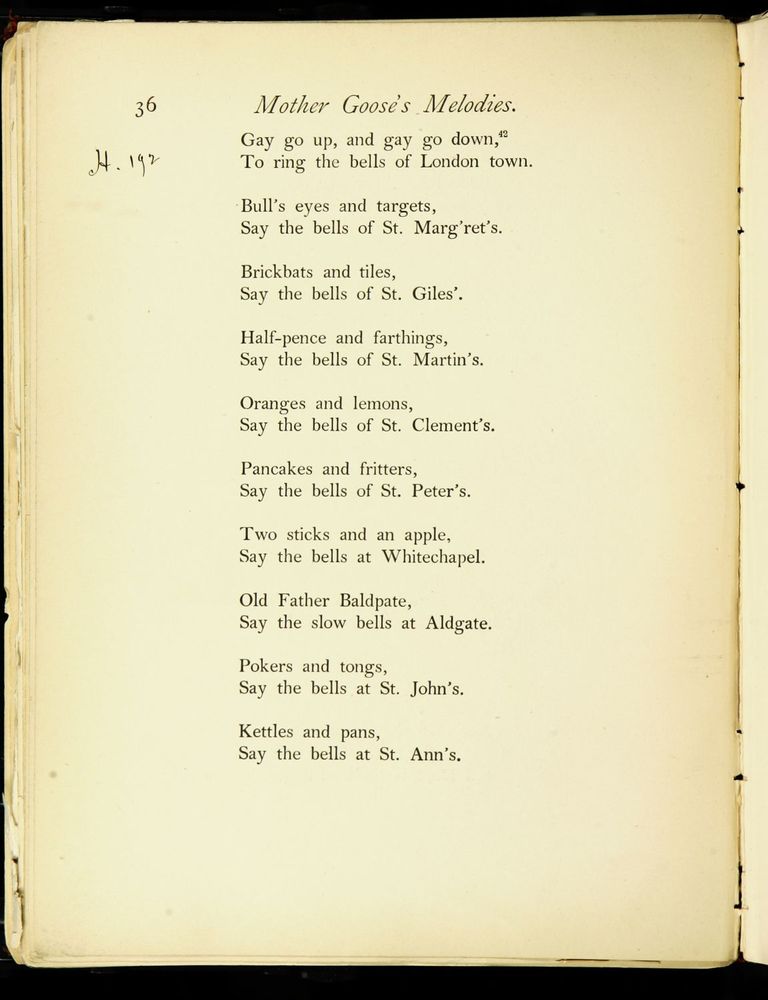 36 Mother Goose's Melodies.
H. 192
Gay go up, and gay go down,42
To ring the bells of London town.
Bull's eyes and targets,
Say the bells of St. Marg'ret's.
Brickbats and tiles,
Say the bells of St. Giles'.
Half-pence and farthings,
Say the bells of St. Martin's.
Oranges and lemons,
Say the bells of St. Clement's.
Pancakes and fritters,
Say the bells of St. Peter's.
Two sticks and an apple,
Say the bells at Whitechapel.
Old Father Baldpate,
Say the slow bells at Aldgate.
Pokers and tongs,
Say the bells at St. John's.
Kettles and pans,
Say the bells at St. Ann's.